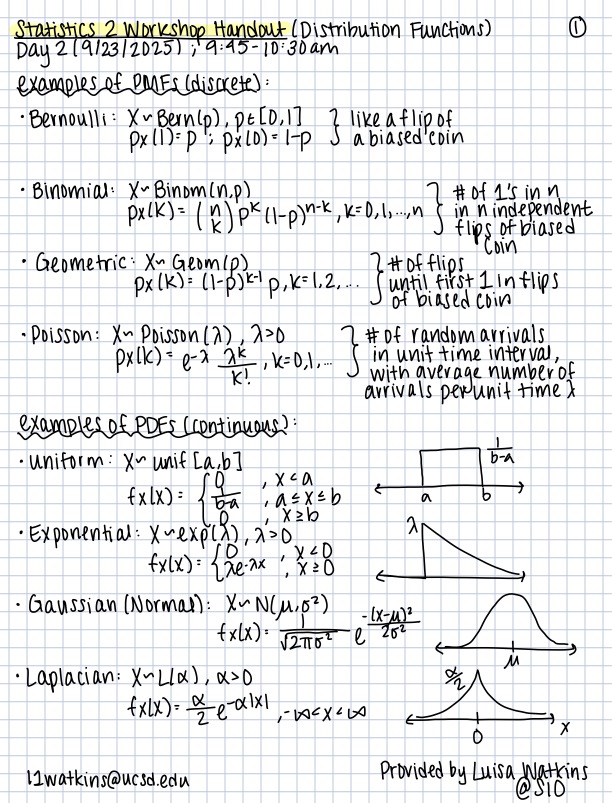 Statistics 2 Workshop Handout (Distribution Functions) ①
Day 2 (9/23/2025) ; 9:45-10:30am
examples of PMFs (discrete):
· Bernoulli: X~Bern(p), p∈[0,1] } like a flip of
px(1)=p ; px(0)=1-p } a biased coin
· Binomial: X~Binom(n,p) } # of 1's in n
px(k) = (n k) p^k (1-p)^{n-k}, k=0,1,...,n } in n independent
flips of biased
coin
· Geometric: X~Geom(p) } # of flips
px(k) = (1-p)^{k-1} p, k=1,2,... } until first 1 in flips
of biased coin
· Poisson: X~Poisson(λ), λ>0 } # of random arrivals
px(k) = e^{-λ} λ^k/k!, k=0,1,... } in unit time interval,
with average number of
arrivals per unit time λ
examples of PDFs (continuous):
· Uniform: X~unif[a,b]
fx(x) = { 0 , x<a
1/(b-a) , a≤x≤b
0 , x≥b
1/(b-a)
a b
· Exponential: X~exp(λ), λ>0
fx(x) = { 0 , x<0
λe^{-λx} , x≥0
λ
· Gaussian (Normal): X~N(μ,σ²)
fx(x) = 1/√(2πσ²) e^{-(x-μ)²/2σ²}
μ
· Laplacian: X~L(α), α>0
fx(x) = α/2 e^{-α|x|}, -∞<x<∞
α/2
0 x
l1watkins@ucsd.edu
Provided by Luisa Watkins
@SIO